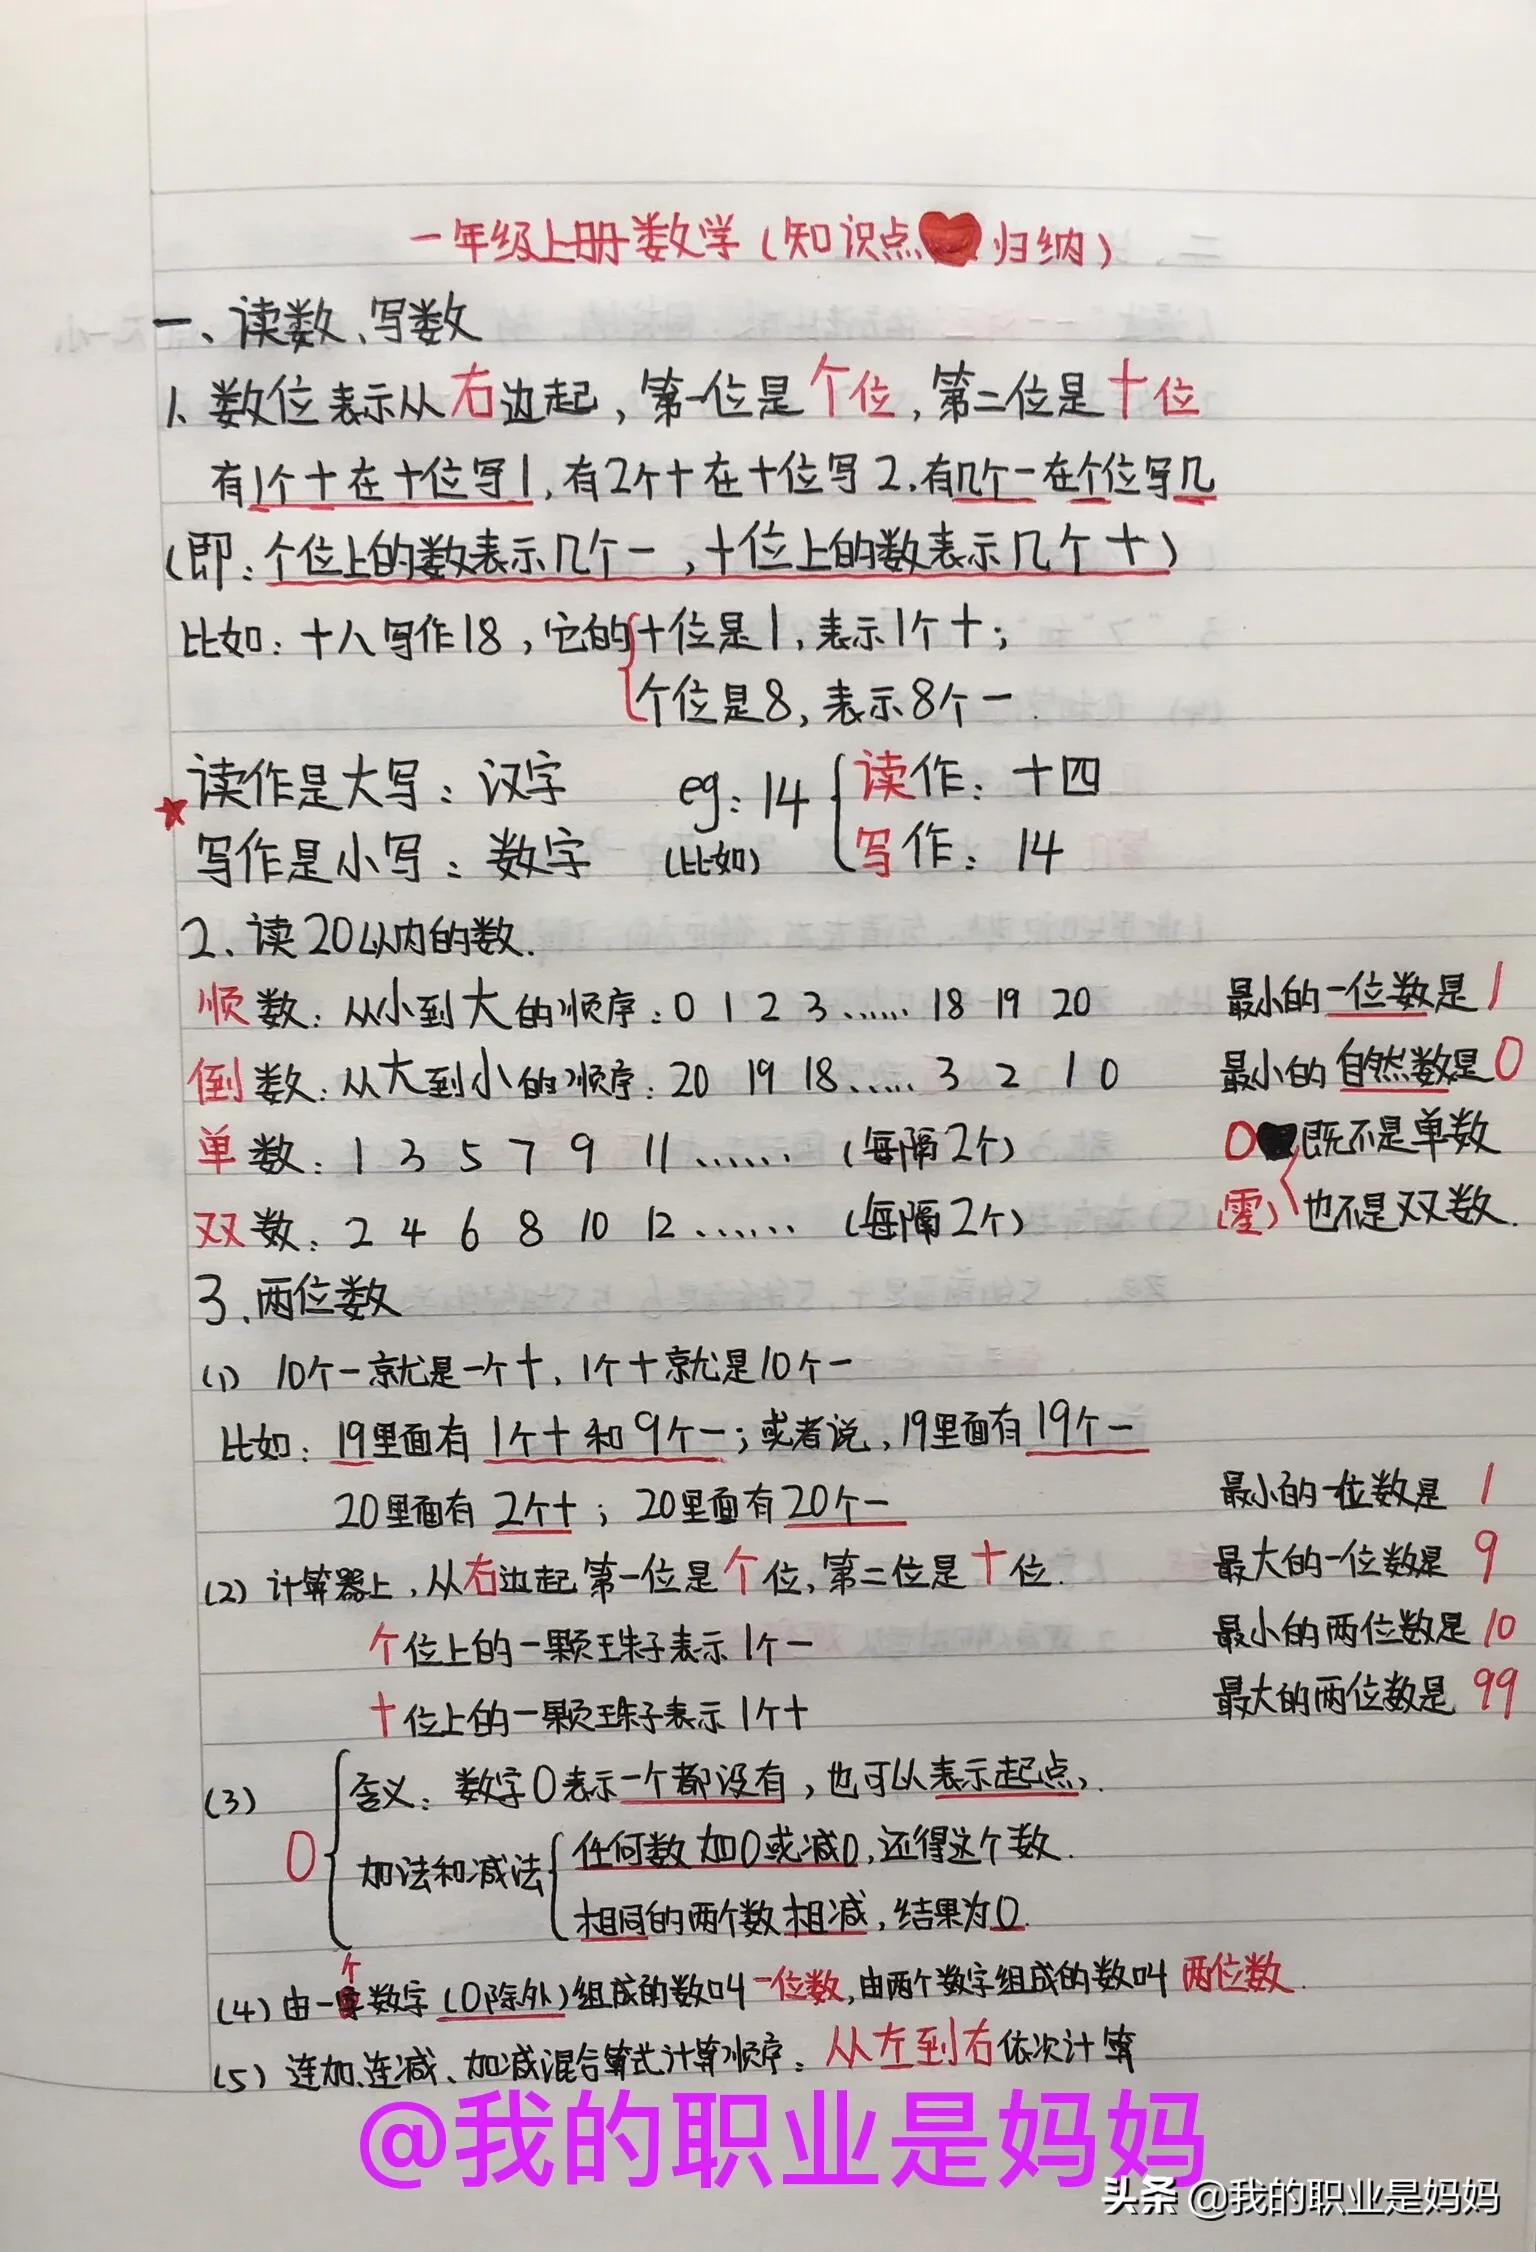 一年级上册数学(知识点归纳)
一、读数、写数
1、数位表示从右边起,第一位是个位,第二位是十位
有1个十在十位写1,有2个十在十位写2.有几个一在个位写几
(即:个位上的数表示几个一,十位上的数表示几个十)
比如:十八写作18,它的十位是1,表示1个十;
个位是8,表示8个一.
读作是大写:汉字 eg:14 读作:十四
写作是小写:数字 (比如) 写作:14
2、读20以内的数.
顺数:从小到大的顺序:0 1 2 3 ...... 18 19 20 最小的一位数是1
倒数:从大到小的顺序:20 19 18 ...... 3 2 1 0 最小的自然数是0
单数:1 3 5 7 9 11 ...... (每隔2个) 0既不是单数
双数:2 4 6 8 10 12 ...... (每隔2个) (零)也不是双数.
3.两位数
(1) 10个一就是一个十,1个十就是10个一
比如:19里面有1个十和9个一;或者说,19里面有19个一
20里面有2个十;20里面有20个一 最小的一位数是 1
(2) 计算器上,从右边起第一位是个位,第二位是十位. 最大的一位数是 9
个位上的一颗珠子表示1个一 最小的两位数是 10
十位上的一颗珠子表示1个十 最大的两位数是 99
(3) 含义:数字0表示一个都没有,也可以表示起点,.
0 加法和减法 任何数加0或减0,还得这个数.
相同的两个数相减,结果为0.
(4) 由一个数字(0除外)组成的数叫一位数,由两个数字组成的数叫两位数.
(5) 连加、连减、加减混合算式计算顺序:从左到右依次计算
@我的职业是妈妈
头条 @我的职业是妈妈